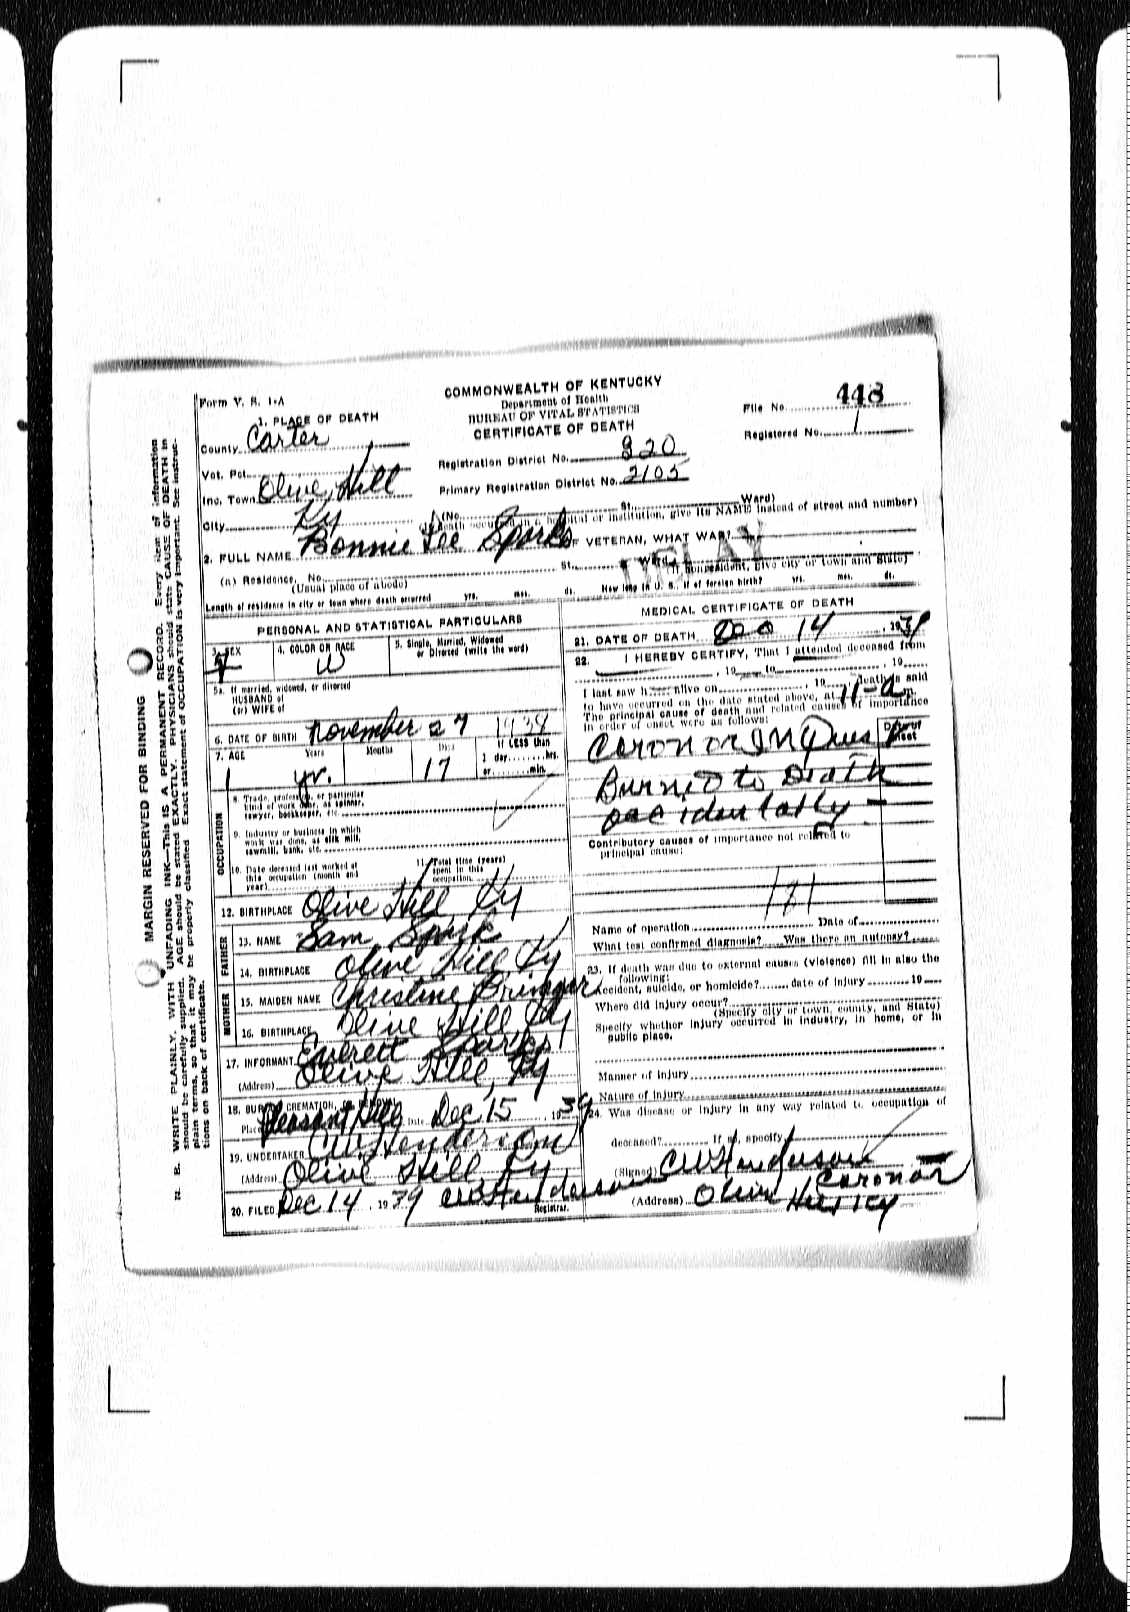 Form V. S. 1-A
COMMONWEALTH OF KENTUCKY
Department of Health
BUREAU OF VITAL STATISTICS
CERTIFICATE OF DEATH
File No. 448
Registered No. 1
Registration District No. 320
Primary Registration District No. 2105
1. PLACE OF DEATH
County Carter
Vot. Pct.
Inc. Town Olive Hill
City Ky
(No. St. Ward)
(If death occurred in a hospital or institution, give its NAME instead of street and number)
2. FULL NAME Bonnie Lee Sparks IF VETERAN, WHAT WAR?
DELAY
(a) Residence. No. St. Ward
(Usual place of abode) (If nonresident, give city or town and State)
Length of residence in city or town where death occurred yrs. mos. ds. How long in U. S., if of foreign birth? yrs. mos. ds.
PERSONAL AND STATISTICAL PARTICULARS
3. SEX F
4. COLOR OR RACE W
5. Single, Married, Widowed
or Divorced (write the word)
5a. If married, widowed, or divorced
HUSBAND of
(or) WIFE of
6. DATE OF BIRTH November 27 1938
7. AGE Years Months Days If LESS than
1 day, hrs.
or min.
1 yr. 17
OCCUPATION
8. Trade, profession, or particular
kind of work done, as spinner,
sawyer, bookkeeper, etc.
9. Industry or business in which
work was done, as silk mill,
sawmill, bank, etc.
10. Date deceased last worked at
this occupation (month and
year)
11. Total time (years)
spent in this
occupation
12. BIRTHPLACE Olive Hill, Ky
FATHER
13. NAME Sam Sparks
14. BIRTHPLACE Olive Hill Ky
MOTHER
15. MAIDEN NAME Christine
16. BIRTHPLACE Olive Hill Ky
17. INFORMANT Everett Sparks
(Address) Olive Hill, Ky
18. BURIAL, CREMATION, OR REMOVAL
Place Pleasant Hill Date Dec 15, 1939
19. UNDERTAKER CW Henderson
(Address) Olive Hill, Ky
20. FILED Dec 14, 1939 CW Henderson
Registrar.
MEDICAL CERTIFICATE OF DEATH
21. DATE OF DEATH Dec 14, 1939
22. I HEREBY CERTIFY, That I attended deceased from
, 19 to , 19
I last saw h alive on , 19 death is said
to have occurred on the date stated above, at 11-a m.
The principal cause of death and related causes of importance
in order of onset were as follows:
Date of
onset
Coronor INQuest
Burned to Death
accidentally
Contributory causes of importance not related to
principal cause:
181
Name of operation Date of
What test confirmed diagnosis? Was there an autopsy?
23. If death was due to external causes (violence) fill in also the
following:
Accident, suicide, or homicide? date of injury 19
Where did injury occur?
(Specify city or town, county, and State)
Specify whether injury occurred in industry, in home, or in
public place.
Manner of injury
Nature of injury
24. Was disease or injury in any way related to occupation of
deceased? If so, specify
(Signed) CW Henderson
Coronor
(Address) Olive Hill, Ky
MARGIN RESERVED FOR BINDING
N. B. WRITE PLAINLY, WITH UNFADING INK—THIS IS A PERMANENT RECORD. Every item of information
should be carefully supplied. AGE should be stated EXACTLY. PHYSICIANS should state CAUSE OF DEATH in
plain terms, so that it may be properly classified. Exact statement of OCCUPATION is very important. See instruc-
tions on back of certificate.